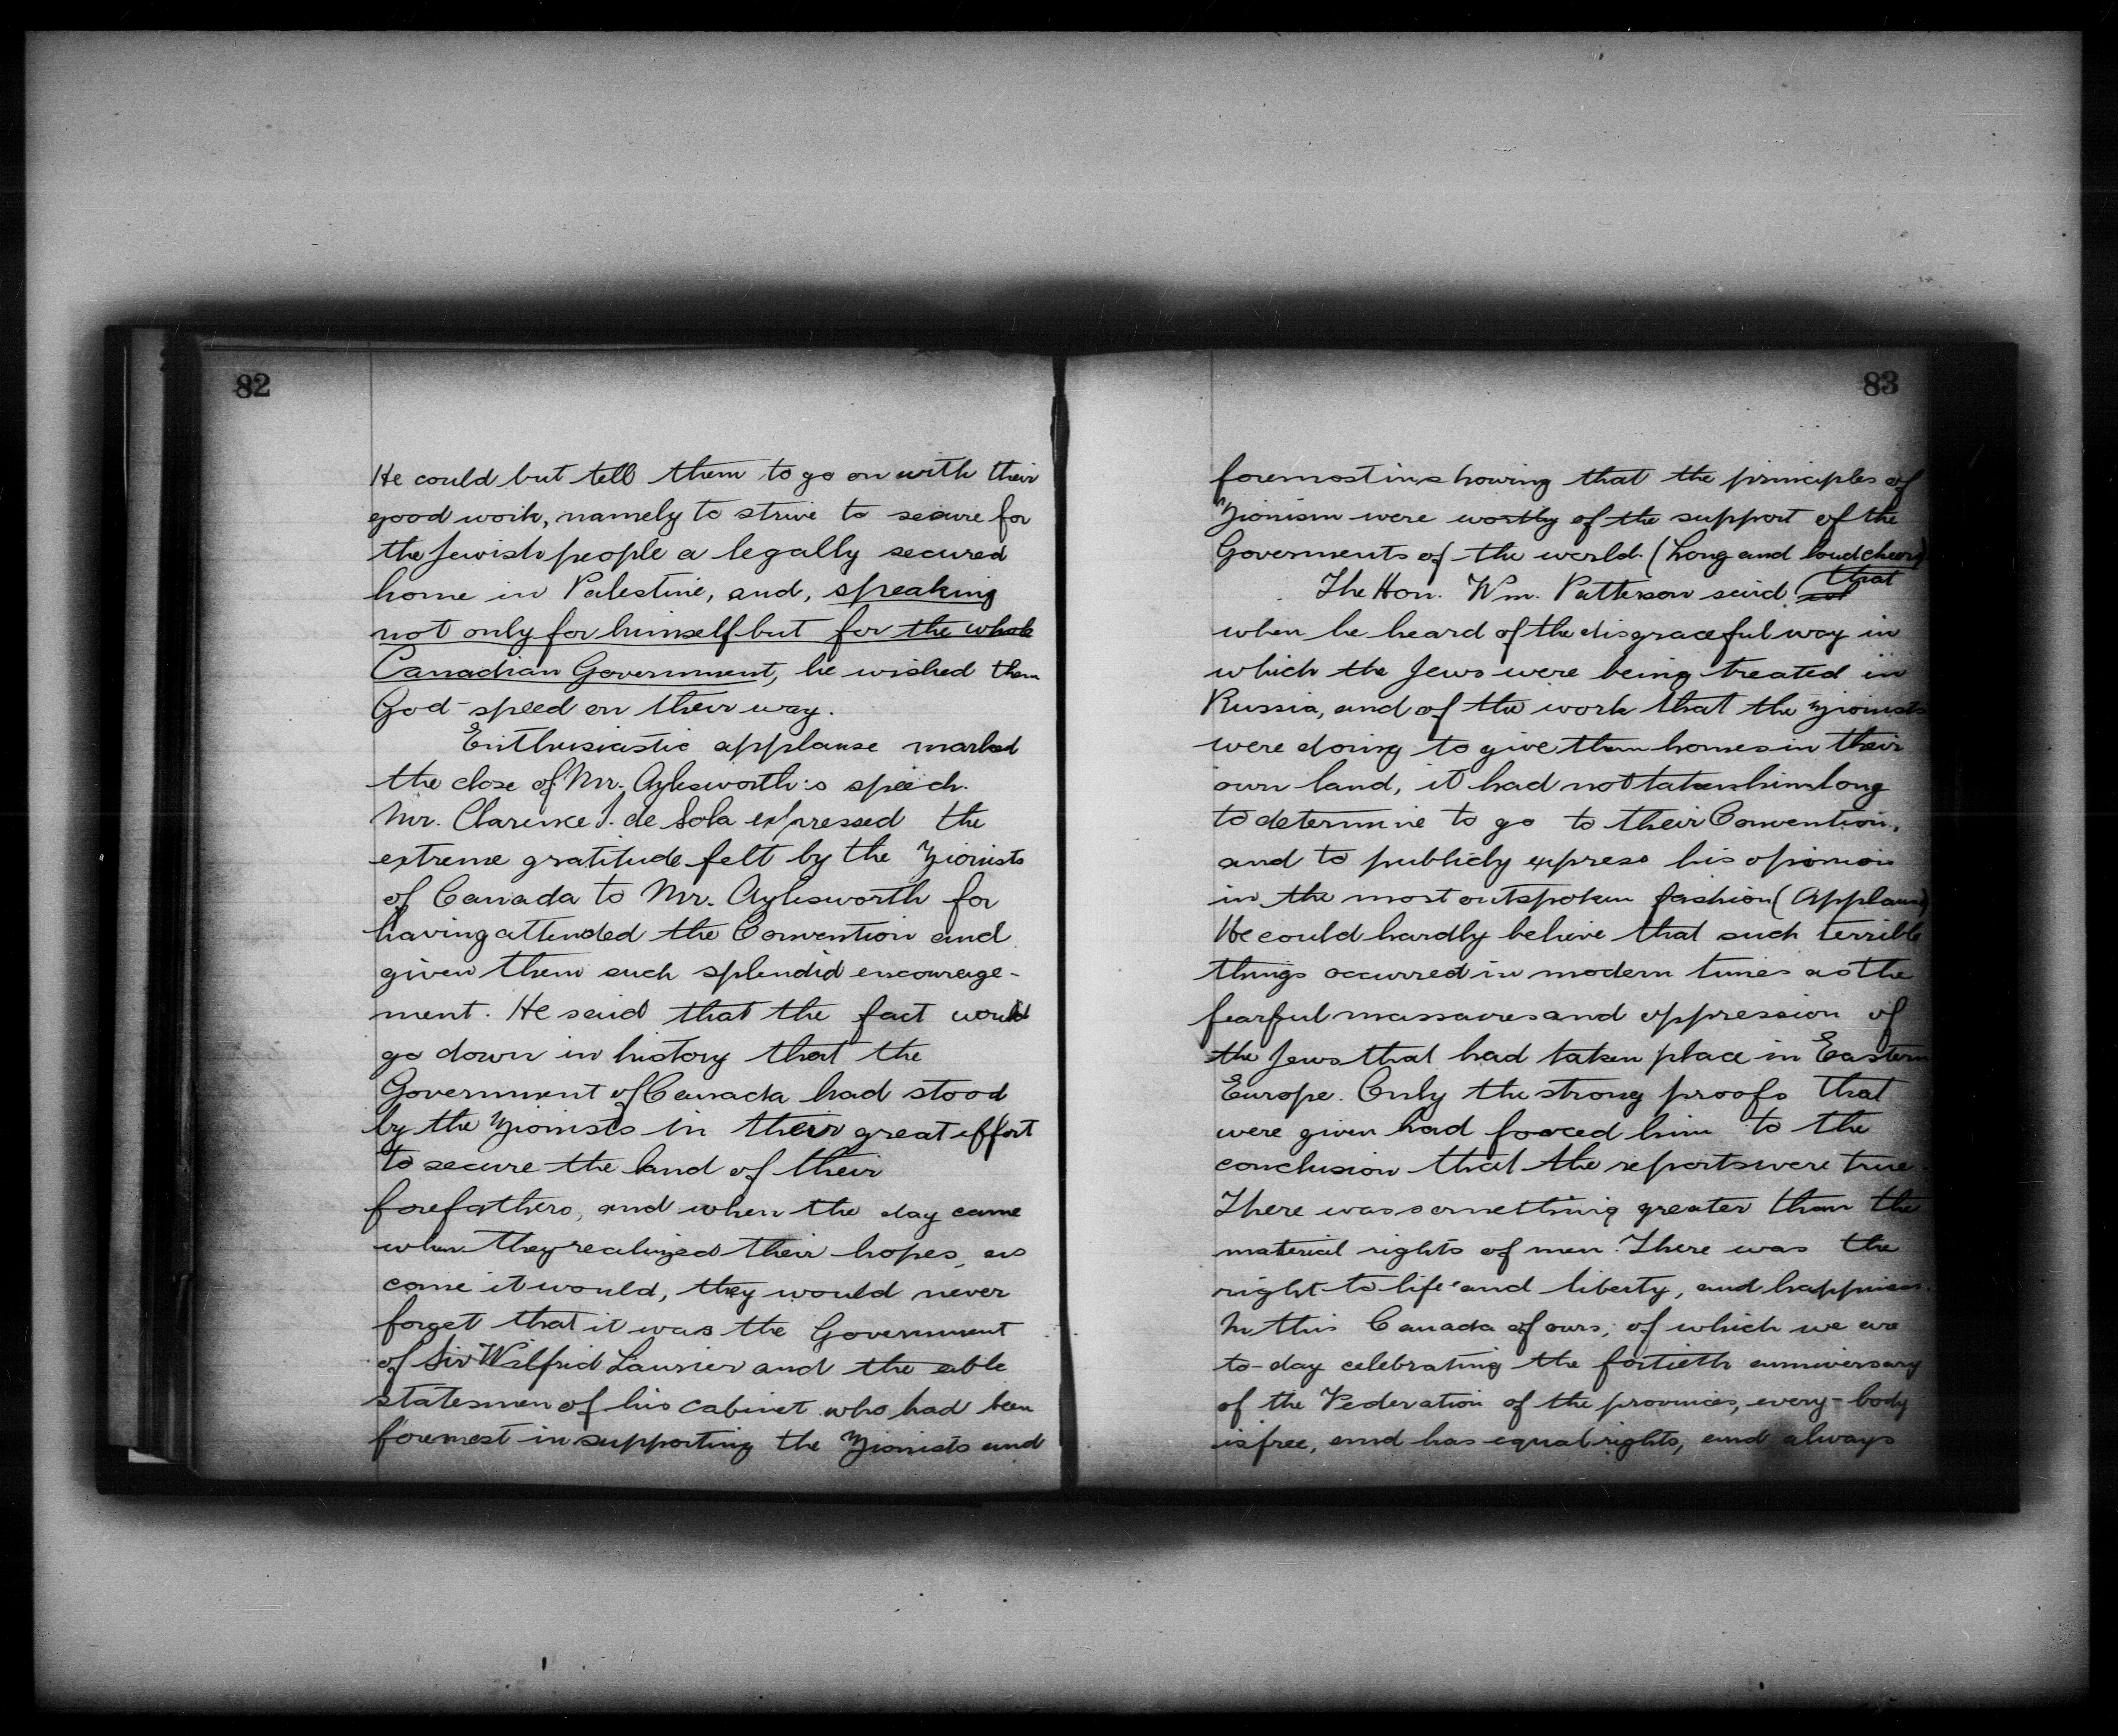 82
He could but tell them to go on with their
good work, namely to strive to secure for
the Jewish people a legally secured
home in Palestine, and, speaking
not only for himself but for the whole
Canadian Government, he wished them
God-speed on their way.
Enthusiastic applause marked
the close of Mr. Aylesworth's speech.
Mr. Clarence I. de Sola expressed the
extreme gratitude felt by the Zionists
of Canada to Mr. Aylesworth for
having attended the Convention and
given them such splendid encourage-
ment. He said that the fact would
go down in history that the
Government of Canada had stood
by the Zionists in their great effort
to secure the land of their
forefathers, and when the day came
when they realized their hopes, as
come it would, they would never
forget that it was the Government
of Sir Wilfrid Laurier and the able
statesmen of his cabinet who had been
foremost in supporting the Zionists and
83
foremost in showing that the principles of
Zionism were worthy of the support of the
Goverments of the world. (Long and loud cheers)
The Hon. Wm. Patterson said that
when he heard of the disgraceful way in
which the Jews were being treated in
Russia, and of the work that the Zionists
were doing to give them homes in their
own land, it had not taken him long
to determine to go to their Convention,
and to publicly express his opinion
in the most outspoken fashion (Applause)
He could hardly believe that such terrible
things occurred in modern times as the
fearful massacres and oppression of
the Jews that had taken place in Eastern
Europe. Only the strong proofs that
were given had forced him to the
conclusion that the reports were true.
There was something greater than the
material rights of men. There was the
right to life and liberty, and happiness.
In this Canada of ours, of which we are
to-day celebrating the fortieth anniversary
of the Federation of the provinces, every-body
is free, and has equal rights, and always